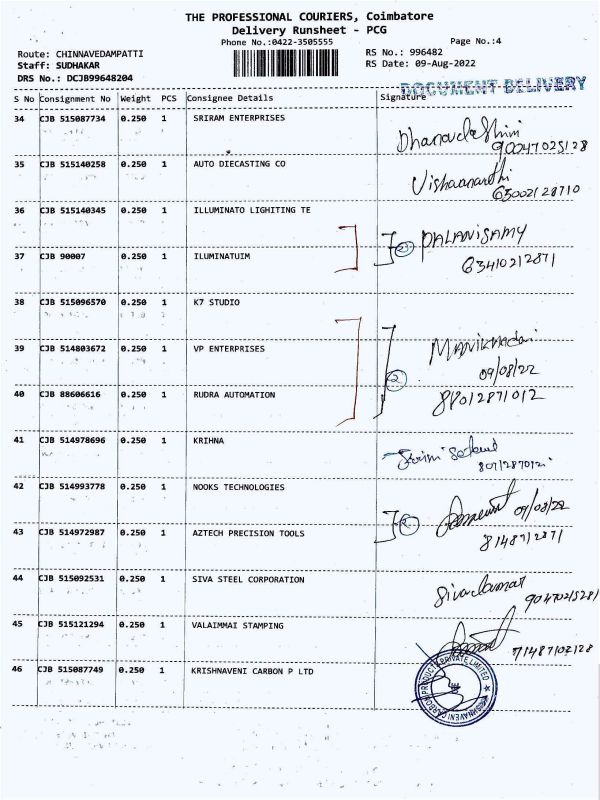 THE PROFESSIONAL COURIERS, Coimbatore
Delivery Runsheet - PCG
Phone No.:0422-3505555
Page No.:4
Route: CHINNAVEDAMPATTI
RS No.: 996482
Staff: SUDHAKAR
RS Date: 09-Aug-2022
DRS No.: DCJB99648204
DOCUMENT DELIVERY
S No Consignment No Weight PCS Consignee Details Signature
34 CJB 515087734 0.250 1 SRIRAM ENTERPRISES
90047025128
35 CJB 515140258 0.250 1 AUTO DIECASTING CO
63002128710
36 CJB 515140345 0.250 1 ILLUMINATO LIGHITING TE
PALANISAMY
37 CJB 90007 0.250 1 ILUMINATUIM
63410212871
38 CJB 515096570 0.250 1 K7 STUDIO
39 CJB 514803672 0.250 1 VP ENTERPRISES
09/08/22
2
40 CJB 88606616 0.250 1 RUDRA AUTOMATION
88012871012
41 CJB 514978696 0.250 1 KRIHNA
42 CJB 514993778 0.250 1 NOOKS TECHNOLOGIES
09/08/22
43 CJB 514972987 0.250 1 AZTECH PRECISION TOOLS
44 CJB 515092531 0.250 1 SIVA STEEL CORPORATION
45 CJB 515121294 0.250 1 VALAIMMAI STAMPING
71487102128
46 CJB 515087749 0.250 1 KRISHNAVENI CARBON P LTD
KRISHNAVENI CARBON PRODUCTS PRIVATE LIMITED